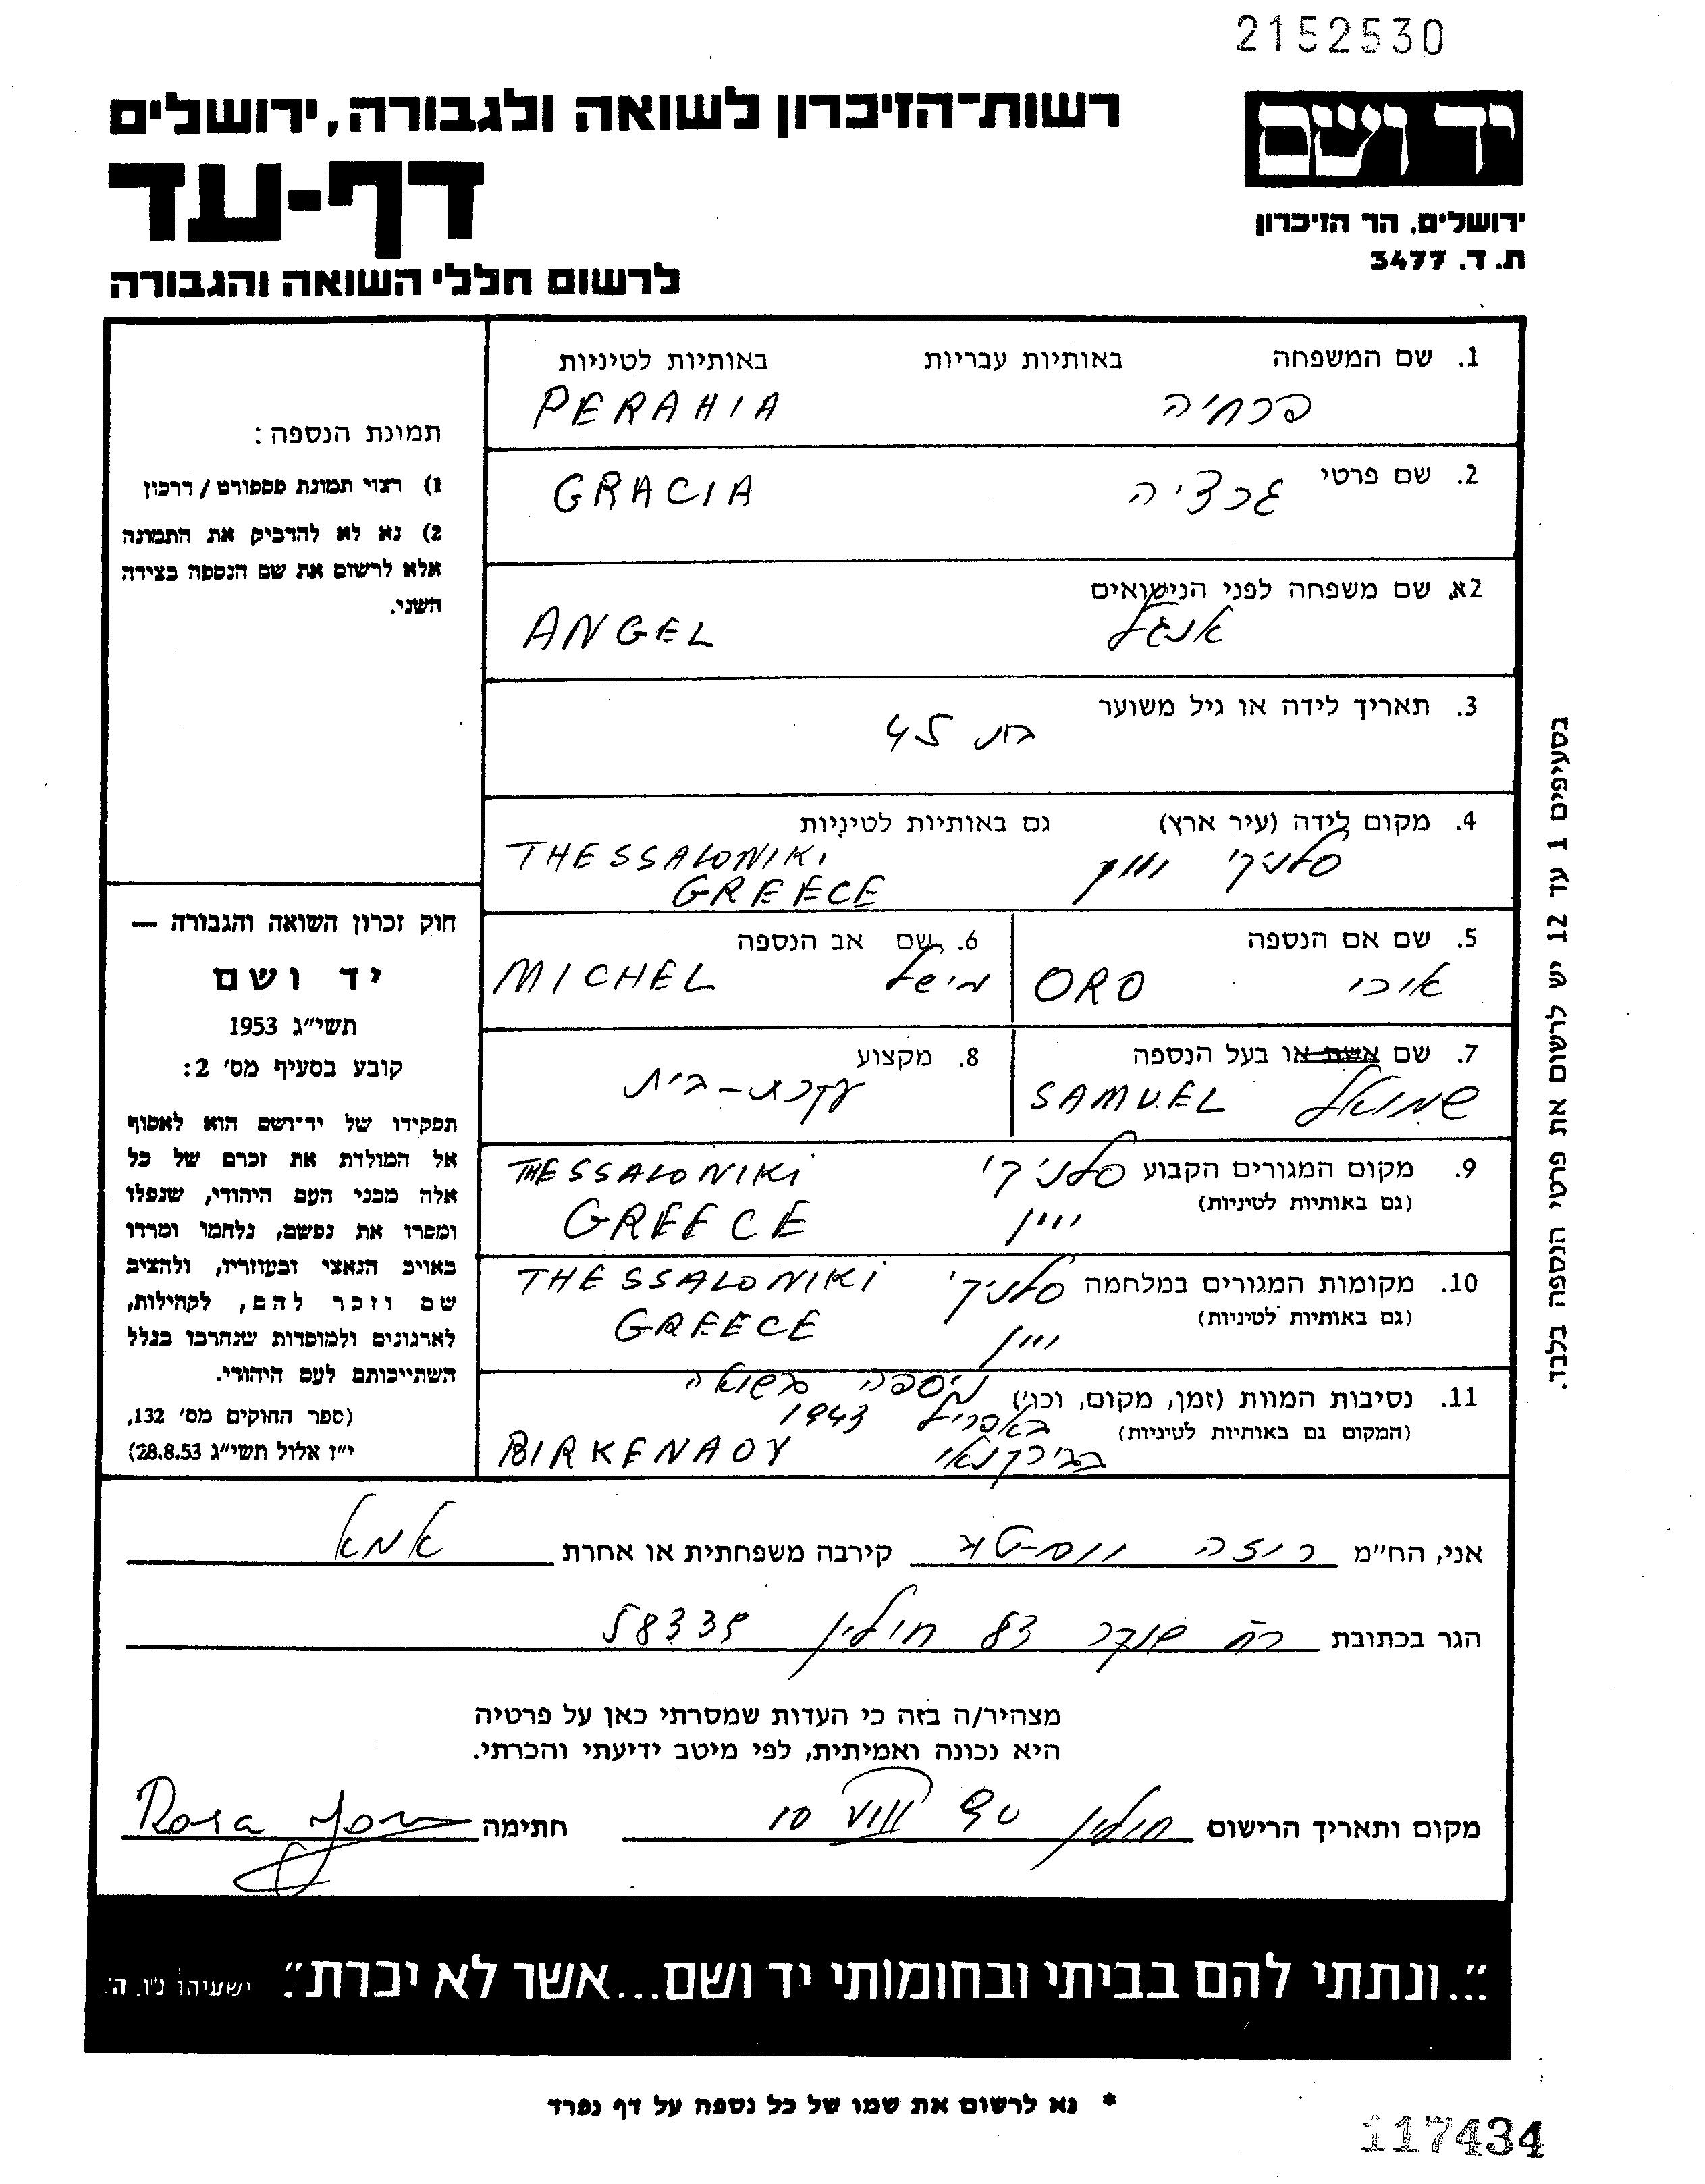 2152530
יד ושם
ירושלים. הר הזיכרון
ת. ד. 3477
רשות-הזיכרון לשואה ולגבורה, ירושלים
דף-עד
לרשום חללי השואה והגבורה
1. שם המשפחה באותיות עבריות באותיות לטיניות
פרחיה PERAHIA
2. שם פרטי גרציה GRACIA
2א. שם משפחה לפני הנישואים
אנג'ל ANGEL
3. תאריך לידה או גיל משוער
בת 45
4. מקום לידה (עיר ארץ) גם באותיות לטיניות
סלוניקי יוון THESSALONIKI
GREECE
5. שם אם הנספה
אורו ORO
6. שם אב הנספה
מישל MICHEL
7. שם אשת או בעל הנספה
שמואל SAMUEL
8. מקצוע
עקרת-בית
9. מקום המגורים הקבוע סלוניקי THESSALONIKI
(גם באותיות לטיניות) יוון GREECE
10. מקומות המגורים במלחמה סלוניקי THESSALONIKI
(גם באותיות לטיניות) יוון GREECE
11. נסיבות המוות (זמן, מקום, וכו') ניספה בשואה
באפריל 1943
(המקום גם באותיות לטיניות) בבירקנאו BIRKENAOY
תמונת הנספה:
1) רצוי תמונת פספורט / דרכון
2) נא לא להדביק את התמונה
אלא לרשום את שם הנספה בצידה
השני.
חוק זכרון השואה והגבורה —
יד ושם
תשי״ג 1953
קובע בסעיף מס׳ 2:
תפקידו של יד-ושם הוא לאסוף
אל המולדת את זכרם של כל
אלה מבני העם היהודי, שנפלו
ומסרו את נפשם, נלחמו ומרדו
באויב הנאצי ובעוזריו, ולהציב
שם וזכר להם, לקהילות,
לארגונים ולמוסדות שנחרבו בגלל
השתייכותם לעם היהודי.
(ספר החוקים מס׳ 132,
י״ז אלול תשי״ג 28.8.53)
בסעיפים 1 עד 12 יש לרשום את פרטי הנספה בלבד.
אני, הח״מ רוזה קירבה משפחתית או אחרת אמא
הגר בכתובת רח 83 חולון 58339
מצהיר/ה בזה כי העדות שמסרתי כאן על פרטיה
היא נכונה ואמיתית, לפי מיטב ידיעתי והכרתי.
מקום ותאריך הרישום חולון 10 VIII חתימה Rosa
״...ונתתי להם בביתי ובחומותי יד ושם...אשר לא יכרת״. ישעיהו נ״ו, ה׳.
* נא לרשום את שמו של כל נספה על דף נפרד
117434